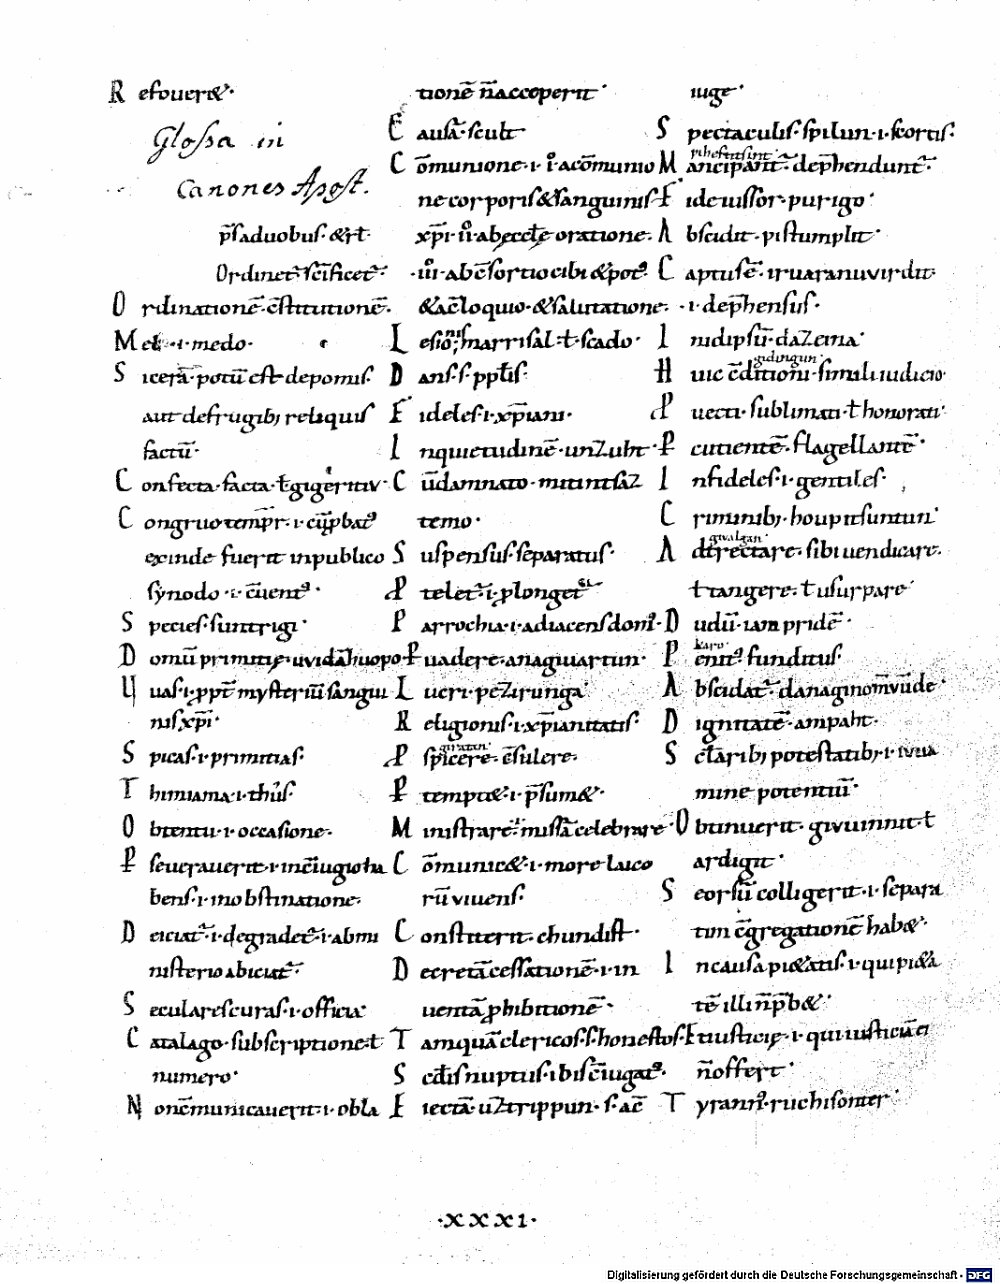 R efouer&·
Glossa in
Canones Apost.
p̄s aduobus· &rt·
Ordinet· scīficet·
O rdinationē· c̄stitutionē·
M el· i· medo·
S icera· potū ēst depomis
aut defrugib; reliquis
factū·
C onfecta· facta· ł gigeritiv·
C ongruo temp̄r· i·
exinde fuerit inpublico
synodo· i· c̄uent⁹·
S pecies· sun trigi·
D omū primitię· uvidāhuopo
U uas· i· ꝓpt̄ mysteriū sangui
nis xp̄i·
S picas· i· primitias·
T himiama· i· thūs·
O btentu· i· occasione·
P seuerauerit· i· inc̄iugio ha
bens· i· inobstinatione·
D eiciat̄· i· degradet̄· i· abmi
nisterio abiciat̄·
S eculares curas· i· officia·
C atalago· subscriptione· ł
numero·
N onc̄municauerit· i· obla
tionē n̄acceperit·
C ausā· scult·
C ōmunione· i· i⁰ acōmunio
ne corporis & sanguinis·
xp̄i· ii⁰ ab eccłe oratione·
·iii⁰· abc̄sortio cibi & pot⁹·
& ac̄loquio· & salutatione·
L esionis; marrisal· ł· scado·
D ans· s· ppłis·
F ideles· i· xp̄iani·
I nquietudinē· unzuht·
C ūdamnato· mitintsaz
temo·
S uspensus· separatus·
P telet̄· i· plonget̄
P arrochia· i· adiacens dom⁹·
P uadere· anaguuartun·
L ucri· pezirunga·
R eligionis· i· xp̄ianitatis·
giratan·
P spicere· c̄sulere·
P temptet· i· p̄sum&·
M inistrare· i· missā celebrare·
C ōmunic&· i· more laico
rū viuens·
C onstiterit· chundist·
D ecretā cessationē· i· in
uentā ꝓhibitionē·
T amquā clericos· s· honestos·
S cd̄is nuptus· ibisc̄iugat⁹·
E iectā· uztrippun· s· ac̄
iuge·
S pectaculis· spilun· i· scortis·
piheftisint·
M ancipant̄· dep̄hendunt̄·
F ideiussor· purigo·
A bscidit· pistumplit·
C aptusē· iruaranuvirdit·
·i· dep̄hensus·
I nidipsū· dazeina·
gidingun·
H uic c̄ditioni· simili iudicio·
P uecti· sublimati· ł honorati·
P cutientē· flagellantē·
I nfideles· i· gentiles·
C riminib; houpitsuntun·
givalgan·
A dtrectare· sibi uendicare·
ł tangere· ł usurpare·
D udū· iam pridē·
karo·
P enit⁹ funditus·
A bscidat̄· danaginomvūde·
D ignitatē· ampaht·
S cłarib; potestatib;· i·
mine potentiū·
O btinuerit· givuinnit· ł
ardigit·
S eorsū colligerit· i· separa
tim c̄gregationē hab&·
I ncausa pi&atis· i· qui pi&a
tē illi n̄p̄b&·
E t iusticię· i· qui iusticiā ei
n̄offert·
T yrann⁹· richisonter·
·XXXI·
Digitalisierung gefördert durch die Deutsche Forschungsgemeinschaft - DFG